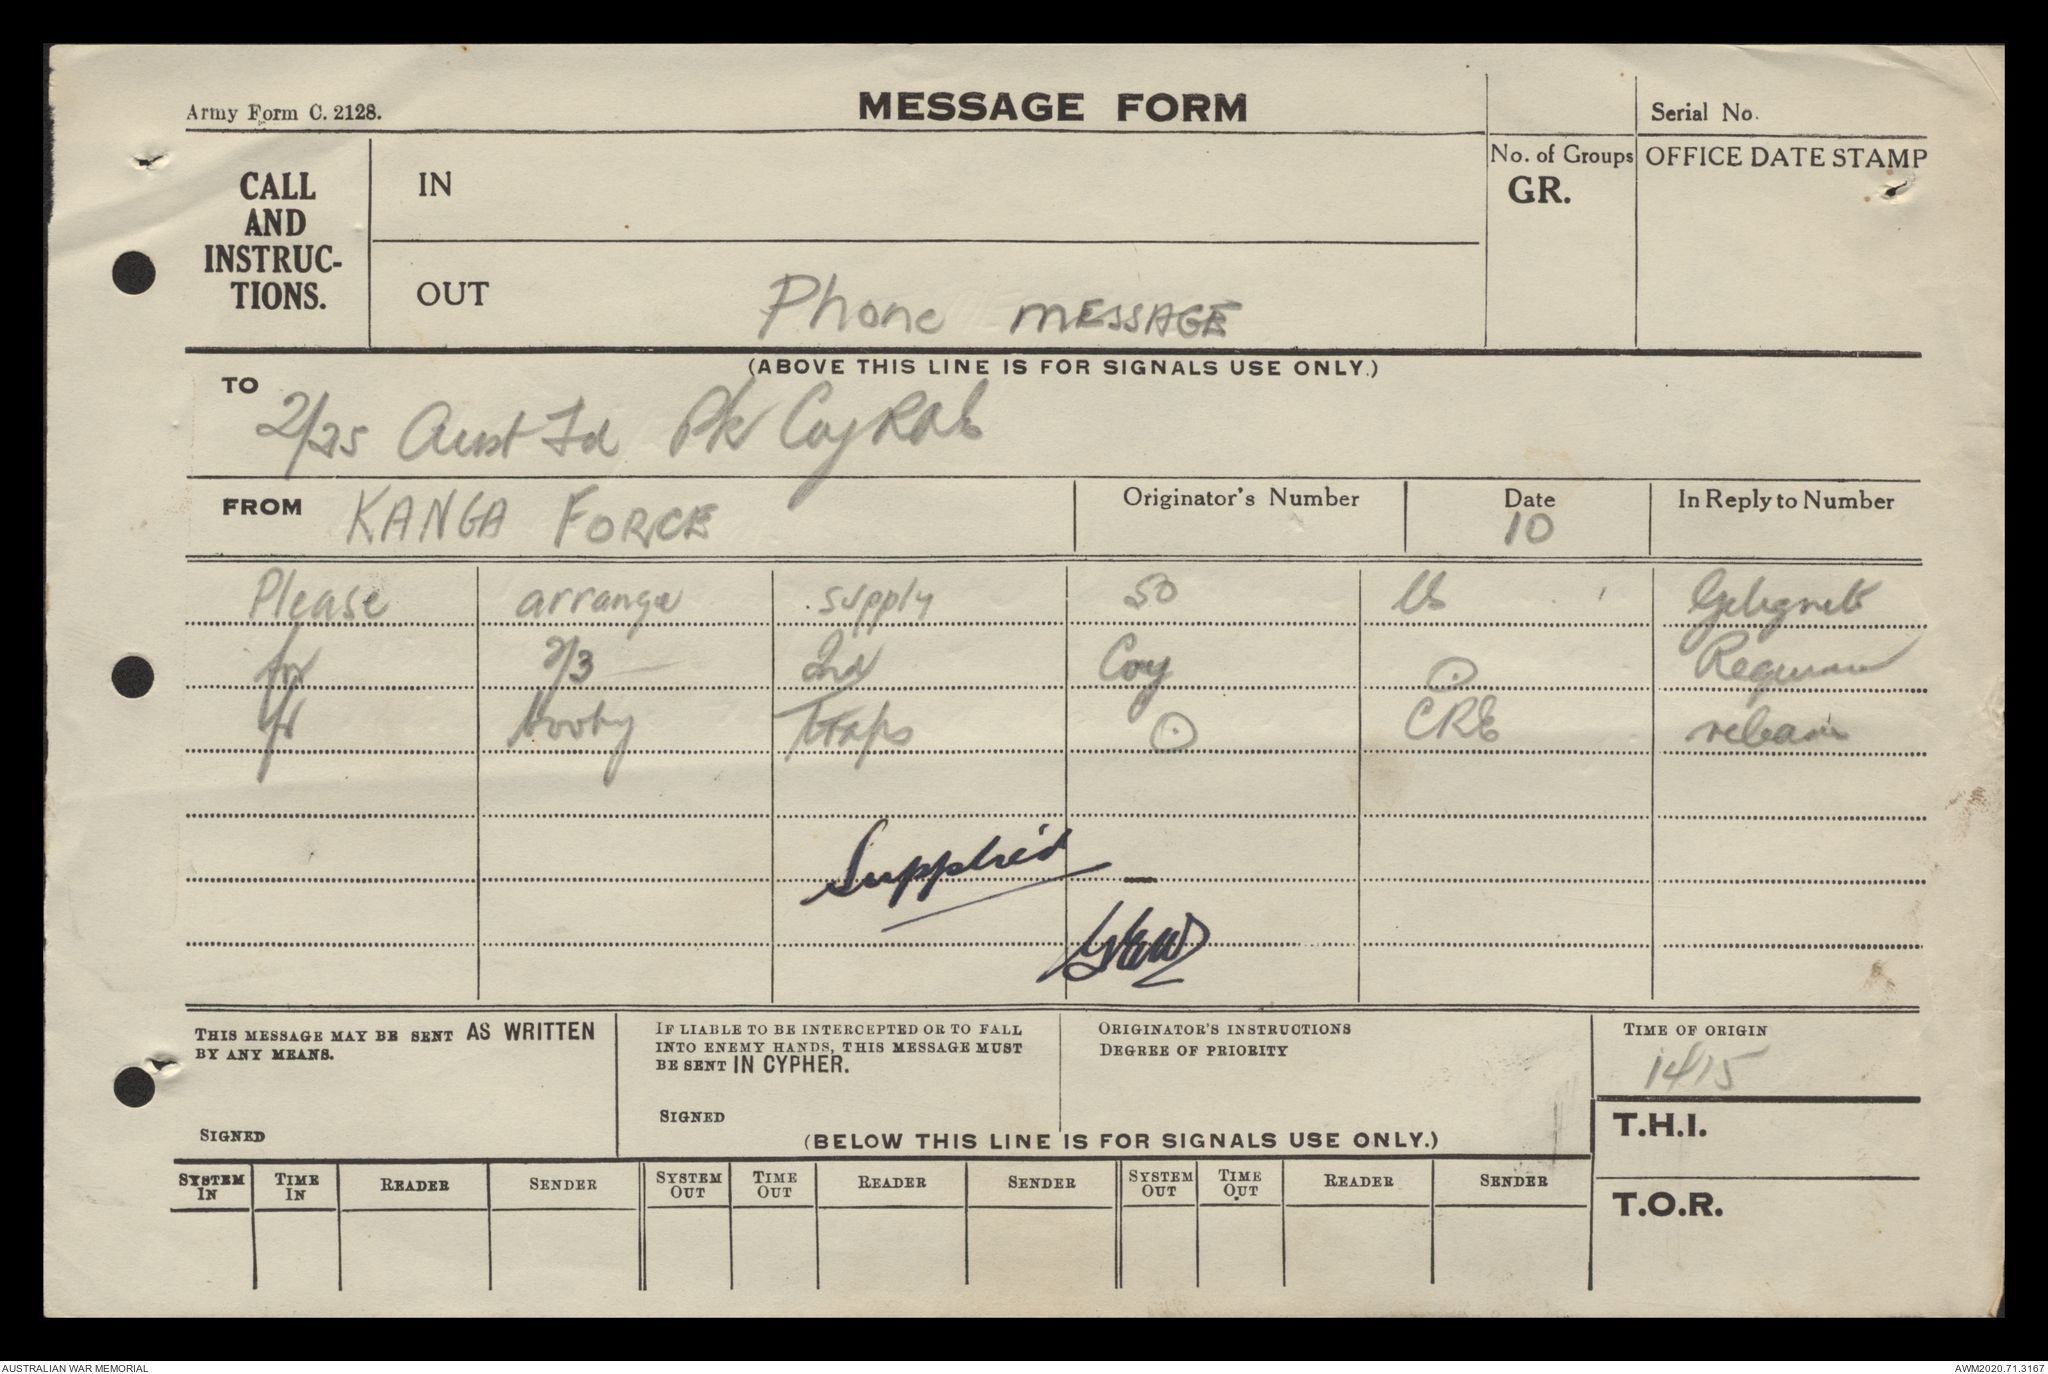 Army Form C. 2128.
MESSAGE FORM
Serial No.
CALL AND INSTRUC- TIONS.
IN
No. of Groups GR.
OFFICE DATE STAMP
OUT Phone MESSAGE
(ABOVE THIS LINE IS FOR SIGNALS USE ONLY.)
TO 2/25 Aust Fd Pk Coy RAE
FROM KANGA FORCE
Originator's Number
Date 10
In Reply to Number
Please arrange supply 50 lb Gelegnite
for 2/3 Ind Coy .
for booby Traps . CRE
Supplied —
THIS MESSAGE MAY BE SENT AS WRITTEN
BY ANY MEANS.
SIGNED
IF LIABLE TO BE INTERCEPTED OR TO FALL
INTO ENEMY HANDS, THIS MESSAGE MUST
BE SENT IN CYPHER.
SIGNED
ORIGINATOR'S INSTRUCTIONS
DEGREE OF PRIORITY
TIME OF ORIGIN
1415
T.H.I.
T.O.R.
(BELOW THIS LINE IS FOR SIGNALS USE ONLY.)
SYSTEM IN TIME IN READER SENDER SYSTEM OUT TIME OUT READER SENDER SYSTEM OUT TIME OUT READER SENDER
AUSTRALIAN WAR MEMORIAL
AWM2020.71.3167